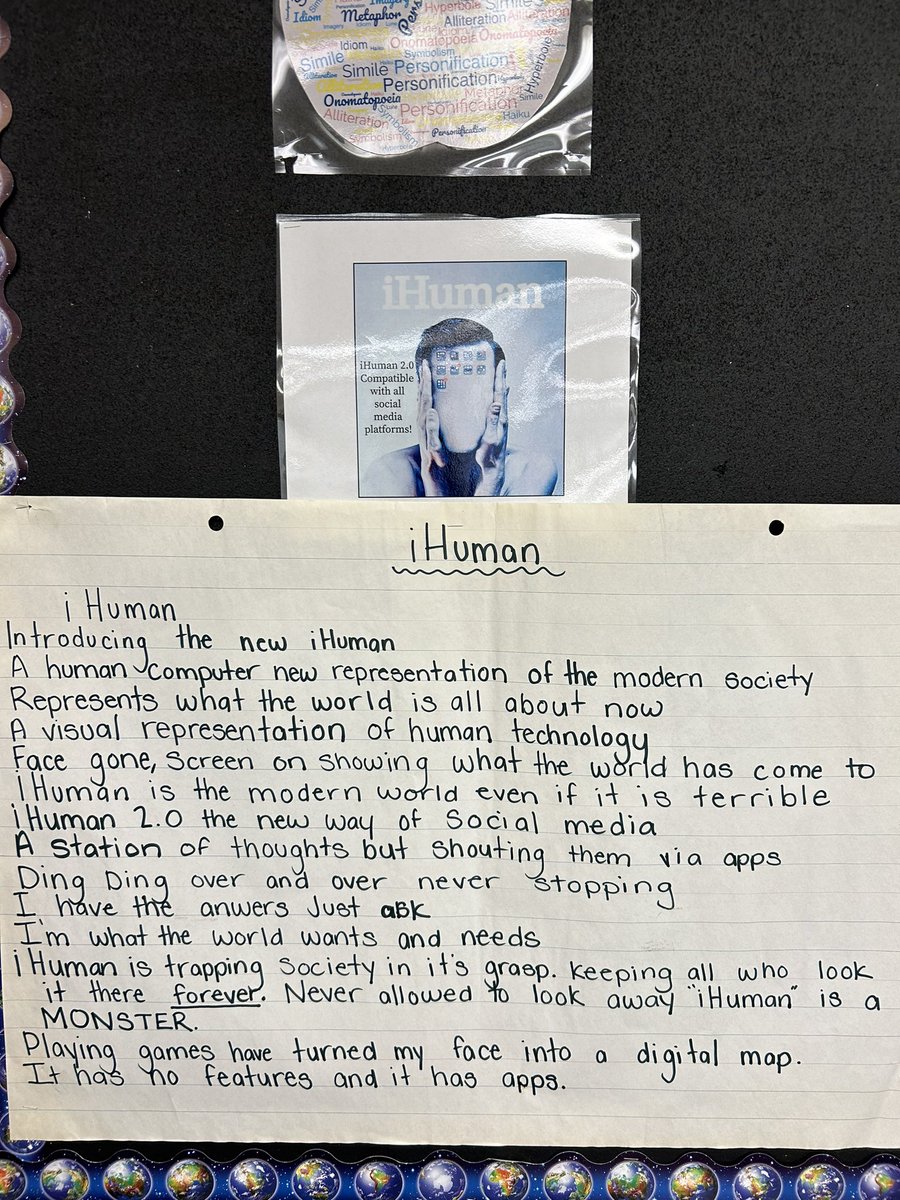 Hyperbole Simile
Idiom Metaphor Alliteration Alliteration
Idiom Onomatopoeia Onomatopoeia
Simile Symbolism Hyperbole
Simile Personification
Alliteration Personification
Onomatopoeia Metaphor Simile
Personification
Alliteration Symbolism Haiku
Symbolism Personification
Hyperbole
iHuman
iHuman 2.0
Compatible
with all
social
media
platforms!
iHuman
iHuman
Introducing the new iHuman
A human computer new representation of the modern society
Represents what the world is all about now
A visual representation of human technology
Face gone, Screen on showing what the world has come to
iHuman is the modern world even if it is terrible
iHuman 2.0 the new way of Social media
A station of thoughts but shouting them via apps
Ding Ding over and over never stopping
I have the anwers Just ask
I'm what the world wants and needs
iHuman is trapping Society in it's grasp. keeping all who look
it there forever. Never allowed to look away "iHuman" is a
MONSTER.
Playing games have turned my face into a digital map.
It has no features and it has apps.